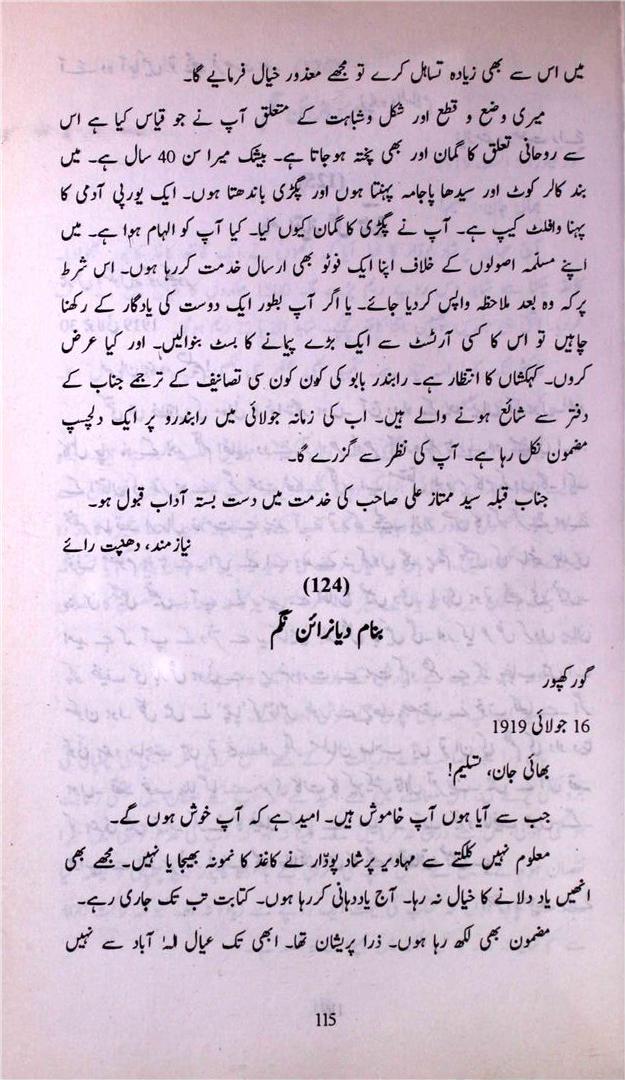 میں اس سے بھی زیادہ تساہل کرے تو مجھے معذور خیال فرمایے گا۔
میری وضع و قطع اور شکل و شباہت کے متعلق آپ نے جو قیاس کیا ہے اس
سے روحانی تعلق کا گمان اور بھی پختہ ہوجاتا ہے۔ بیشک میرا سن 40 سال ہے۔ میں
بند کالر کوٹ اور سیدھا پاجامہ پہنتا ہوں اور پگڑی باندھتا ہوں۔ ایک یورپی آدمی کا
پہنا وافلٹ کیپ ہے۔ آپ نے پگڑی کا گمان کیوں کیا۔ کیا آپ کو الہام ہوا ہے۔ میں
اپنے مسلّمہ اصولوں کے خلاف اپنا ایک فوٹو بھی ارسال خدمت کررہا ہوں۔ اس شرط
پرکہ وہ بعد ملاحظہ واپس کردیا جائے۔ یا اگر آپ بطور ایک دوست کی یادگار کے رکھنا
چاہیں تو اس کا کسی آرٹسٹ سے ایک بڑے پیمانے کا بسٹ بنوالیں۔ اور کیا عرض
کروں۔ کہکشاں کا انتظار ہے۔ رابندر بابو کی کون کون سی تصانیف کے ترجمے جناب کے
دفتر سے شائع ہونے والے ہیں۔ اب کی زمانہ جولائی میں رابندرو پر ایک دلچسپ
مضمون نکل رہا ہے۔ آپ کی نظر سے گزرے گا۔
جناب قبلہ سید ممتاز علی صاحب کی خدمت میں دست بستہ آداب قبول ہو۔
نیازمند، دھنپت رائے
(124)
بنام دیانرائن نگم
گورکھپور
16 جولائی 1919
بھائی جان، تسلیم!
جب سے آیا ہوں آپ خاموش ہیں۔ امید ہے کہ آپ خوش ہوں گے۔
معلوم نہیں کلکتے سے مہاویر پرشاد پودّار نے کاغذ کا نمونہ بھیجا یا نہیں۔ مجھے بھی
انھیں یاد دلانے کا خیال نہ رہا۔ آج یاددہانی کررہا ہوں۔ کتابت تب تک جاری رہے۔
مضمون بھی لکھ رہا ہوں۔ ذرا پریشان تھا۔ ابھی تک عیال الہٰ آباد سے نہیں
115